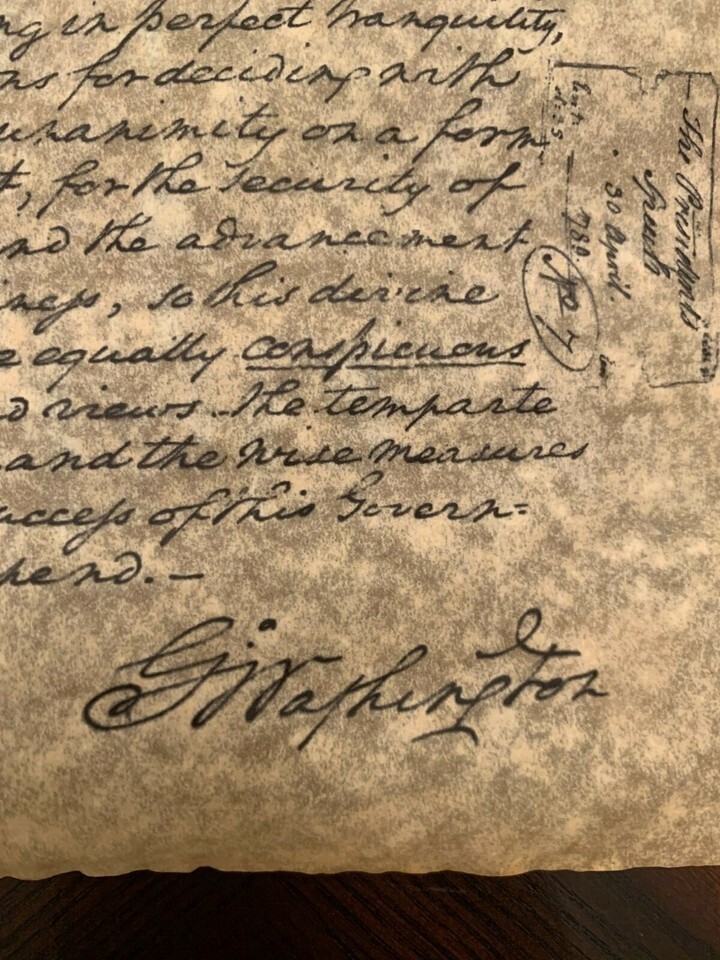 ng in perfect tranquility,
ns for deciding with
unanimity on a form
t, for the security of
and the advancement
iness, so this divine
e equally conspicuous
d views. the temparte
and the wise measures
uccess of this Govern=
pend. —
G. Washington
The President's
Speech
30 April.
789.
No 7